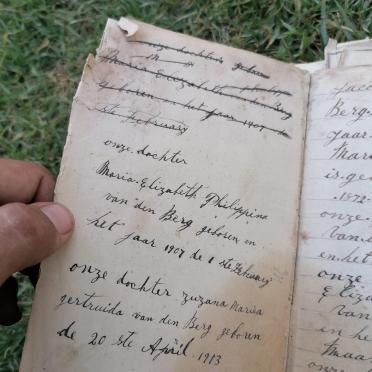 onze dochter geboren
Maria Elizabeth
geboren in het jaar 1907 de
ste February
onze dochter
Maria Elizabeth Philippina
van den Berg geboren in
het jaar 1907 de 1 ste February
onze dochter zuzana Maria
gertruida van den Berg geboren
de 20 ste April 1913
Berg
jaar
Maria
is ge
1872
onze
van d
en het
onze
Eliza
van
en he
Maa